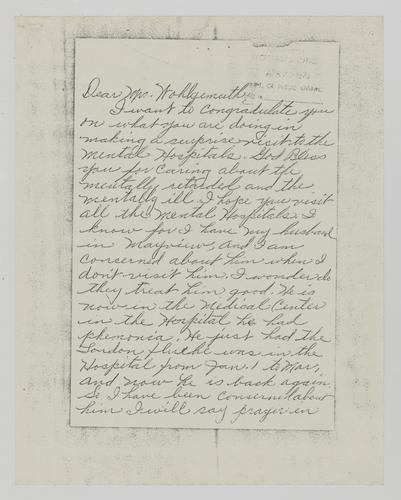 Dear Mr. Wohlgemuth,
I want to congradulate you
on what you are doing in
making a surprise visit to the
Mental Hospitals. God Bless
you for caring about the
mentally retarded and the
mentally ill. I hope you visit
all the Mental Hospitals. I
know for I have my husband
in Mayview, and I am
concerned about him when I
don't visit him. I wonder do
they treat him good. He is
now in the Medical Center
in the Hospital he had
phenonia. He just had the
London flu & he was in the
Hospital from Jan. 1 to Mar,
and now he is back again.
So I have been conserned about
him I will say prayer in